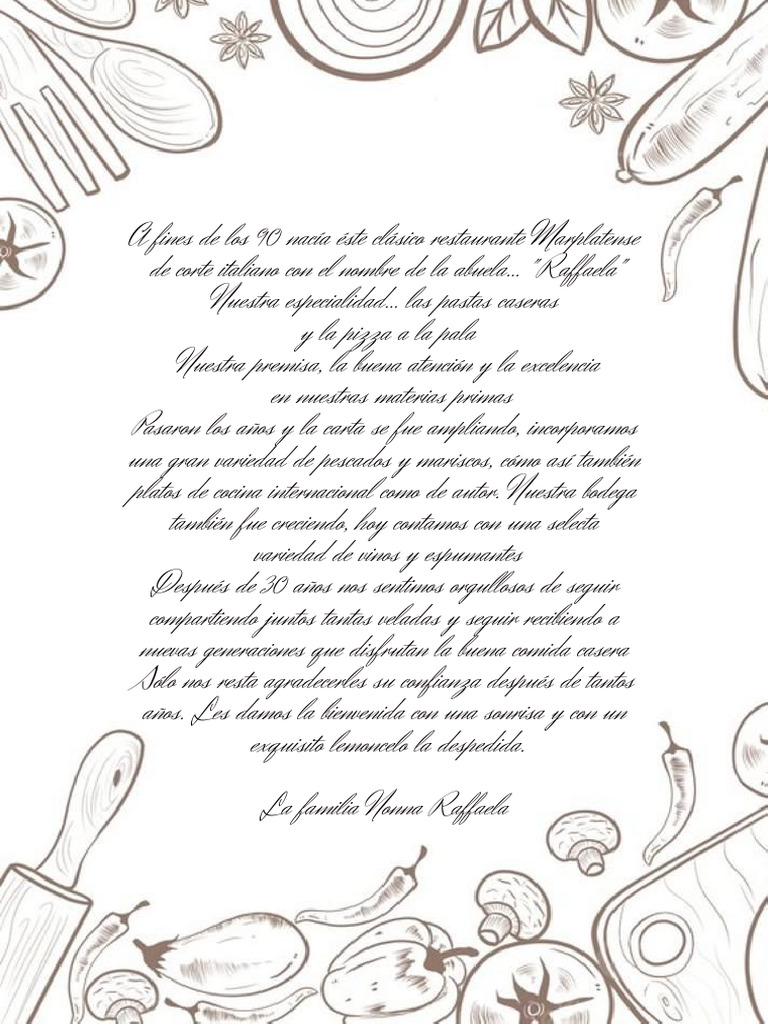 A fines de los 90 nacía éste clásico restaurante Marplatense
de corte italiano con el nombre de la abuela... "Raffaela"
Nuestra especialidad... las pastas caseras
y la pizza a la pala
Nuestra premisa, la buena atención y la excelencia
en nuestras materias primas
Pasaron los años y la carta se fue ampliando, incorporamos
una gran variedad de pescados y mariscos, cómo así también
platos de cocina internacional como de autor. Nuestra bodega
también fue creciendo, hoy contamos con una selecta
variedad de vinos y espumantes
Después de 30 años nos sentimos orgullosos de seguir
compartiendo juntos tantas veladas y seguir recibiendo a
nuevas generaciones que disfrutan la buena comida casera
Sólo nos resta agradecerles su confianza después de tantos
años. Les damos la bienvenida con una sonrisa y con un
exquisito lemoncelo la despedida.
La familia Nonna Raffaela